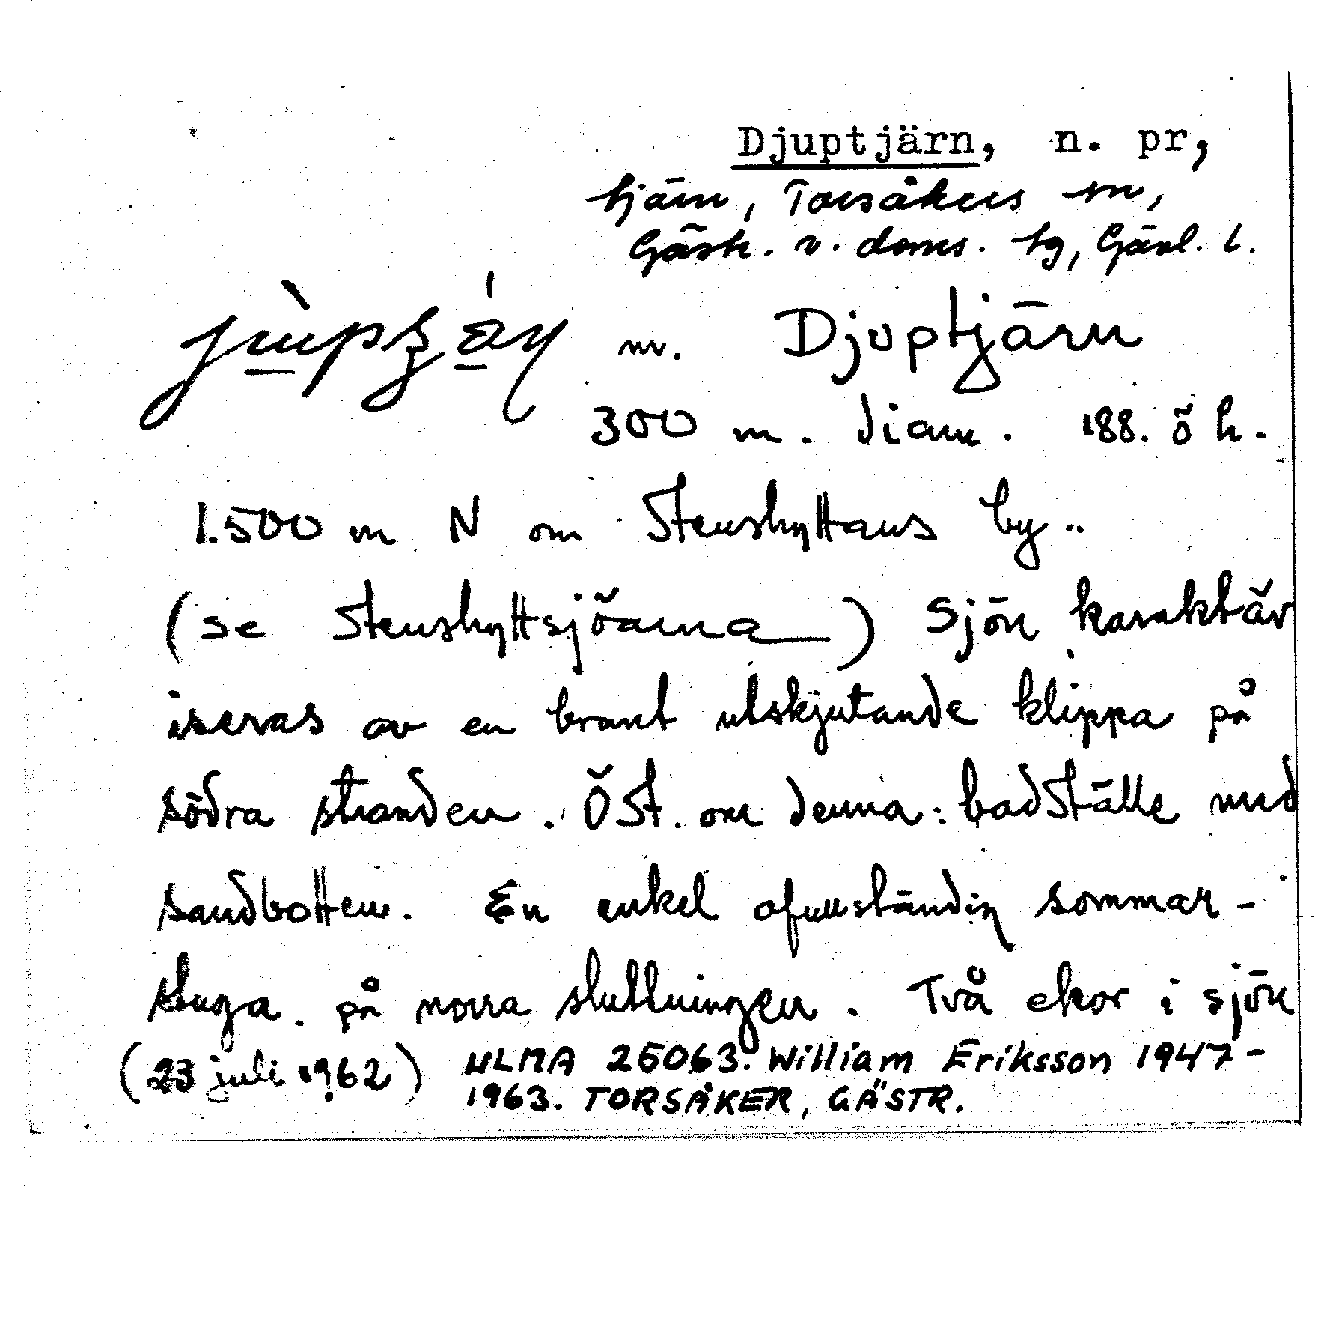 Djuptjärn, n. pr,
tjärn, Torsåkers sn,
Gästr. v. doms. tg, Gävl. l.
m. Djuptjärn
300 m. diam. 188. ö h.
1.500 m N om Stenshyttans by..
(se Stenshyttsjöarna) Sjön karaktär
iseras av en brant utskjutande klippa på
södra stranden. Öst. om denna: badställe med
sandbotten. En enkel ofullständig sommar-
stuga. på norra sluttningen. Två ekor i sjön
(23 juli 1962) ULMA 25063. William Eriksson 1947-
1963. TORSÅKER, GÄSTR.